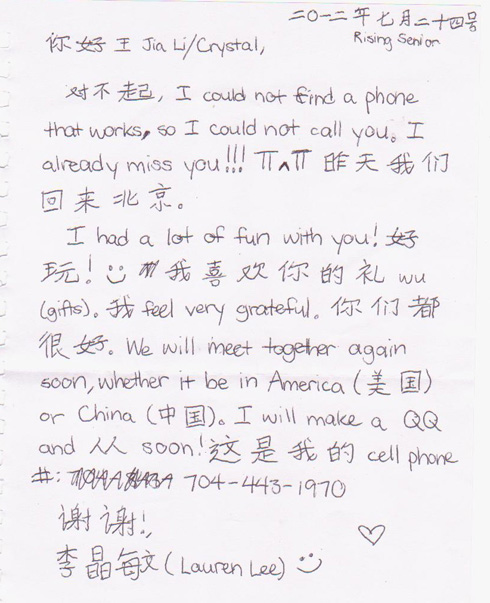 二〇一二年七月二十四号
Rising Senior
你好王 Jia Li/Crystal,
对不起, I could not find a phone
that works, so I could not call you。I
already miss you!!! π^π 昨天我们
回来北京。
I had a lot of fun with you! 好
玩! 我喜欢你的礼 wu
(gifts)。我 feel very grateful。你们都
很好。We will meet together again
soon, whether it be in America (美国)
or China (中国)。I will make a QQ
and 人人 soon! 这是我的 cell phone
#: 704-443-1970
谢谢!,
李晶敏 (Lauren Lee)